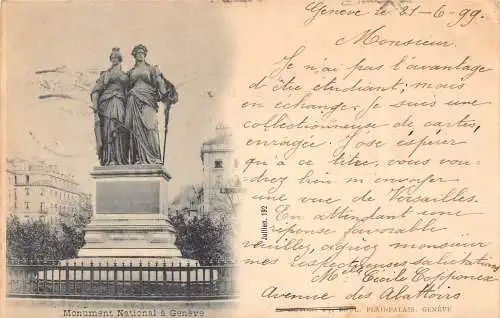 Genève le 21-6-99.
Monsieur
Je n'ai pas l'avantage
d'être étudiant, mais
en échange, je suis une
collectionneuse de cartes,
enragée. J'ose espérer
qu'à ce titre, vous vou-
drez bien m'envoyer
une vue de Versailles.
En attendant une
réponse favorable
veuillez, agréez monsieur
mes respectueuses salutations
Mlle Cécile Copponex
Avenue des Abattoirs
Jullien. 192
PLAINPALAIS, GENÈVE
Monument National à Genève